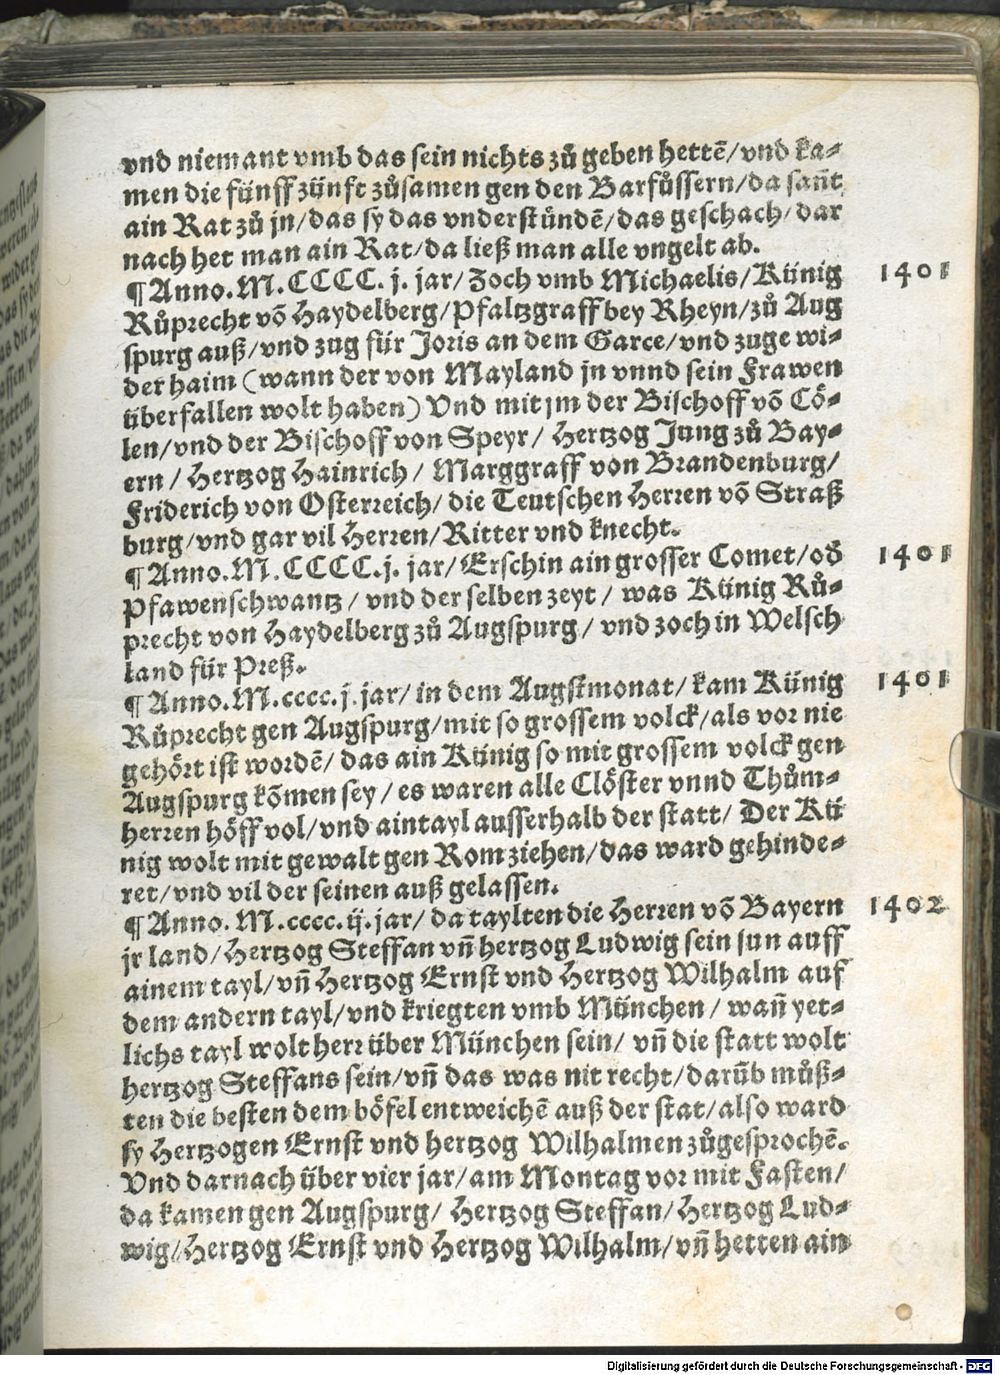 vnd niemant vmb das sein nichts zů geben hettē/vnd ka-
men die fünff zünft zůsamen gen den Barfůssern/da sañt
ain Rat zů jn/das sy das vnderstündē/das geschach/dar
nach het man ain Rat/da ließ man alle vngelt ab.
¶Anno.M.CCCC. j. jar/ Zoch vmb Michaelis/Künig
1401
Růprecht vō Haydelberg/Pfaltzgraff bey Rheyn/zů Aug
spurg auß/vnd zug für Joris an dem Garce/vnd zuge wi-
der haim (wann der von Mayland jn vnnd sein Frawen
überfallen wolt haben) Vnd mit jm der Bischoff vō Cö-
len/vnd der Bischoff von Speyr/ Hertzog Jung zů Bay-
ern/ Hertzog Hainrich/ Marggraff von Brandenburg/
Friderich von Osterreich/ die Teutschen Herren vō Straß
burg/vnd gar vil Herren/Ritter vnd knecht.
¶Anno.M.CCCC.j. jar/ Erschin ain grosser Comet/od̄
1401
Pfawenschwantz/ vnd der selben zeyt/ was Künig Rů-
precht von Haydelberg zů Augspurg/ vnd zoch in Welsch
land für Preß.
¶Anno.M.cccc.j.jar/ in dem Augstmonat/ kam Künig
1401
Růprecht gen Augspurg/mit so grossem volck/als vor nie
gehört ist wordē/das ain Künig so mit grossem volck gen
Augspurg kōmen sey/es waren alle Clöster vnnd Thům-
herren höff vol/vnd aintayl ausserhalb der statt/ Der Kü
nig wolt mit gewalt gen Rom ziehen/das ward gehinde-
ret/vnd vil der seinen auß gelassen.
¶Anno. M.cccc.ij.jar/ da taylten die Herren vō Bayern
1402
jr land/Hertzog Steffan vñ hertzog Ludwig sein sun auff
ainem tayl/vñ Hertzog Ernst vnd Hertzog Wilhalm auf
dem andern tayl/vnd kriegten vmb München/ wañ yet-
lichs tayl wolt herr über München sein/ vñ die statt wolt
hertzog Steffans sein/vñ das was nit recht/darūb můß-
ten die besten dem böfel entweichē auß der stat/also ward
sy Hertzogen Ernst vnd hertzog Wilhalmen zůgesprochē.
Vnd darnach über vier jar/am Montag vor mit Fasten/
da kamen gen Augspurg/ Hertzog Steffan/Hertzog Lud-
wig/Hertzog Ernst vnd Hertzog Wilhalm/vñ hetten ain
Digitalisierung gefördert durch die Deutsche Forschungsgemeinschaft - DFG